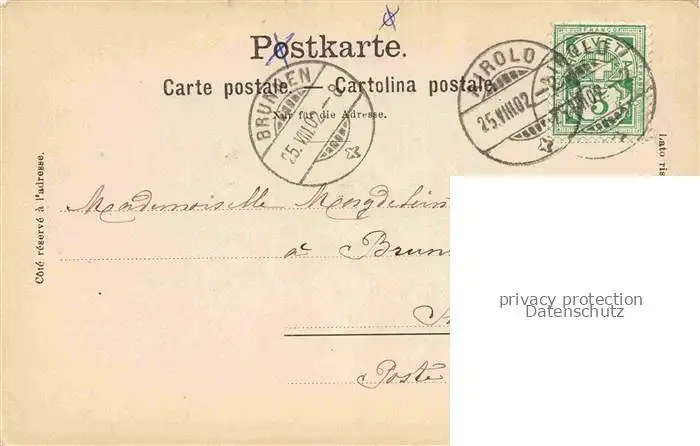 Postkarte.
Carte postale. — Cartolina postale.
Nur für die Adresse.
BRUNNEN
25.VIII.02.-8
AIROLO
25.VIII.02
HELVETIA
FRANCO
5
Côté réservé à l'adresse.
Lato ris
Mademoiselle
à Brun
Poste
privacy protection
Datenschutz